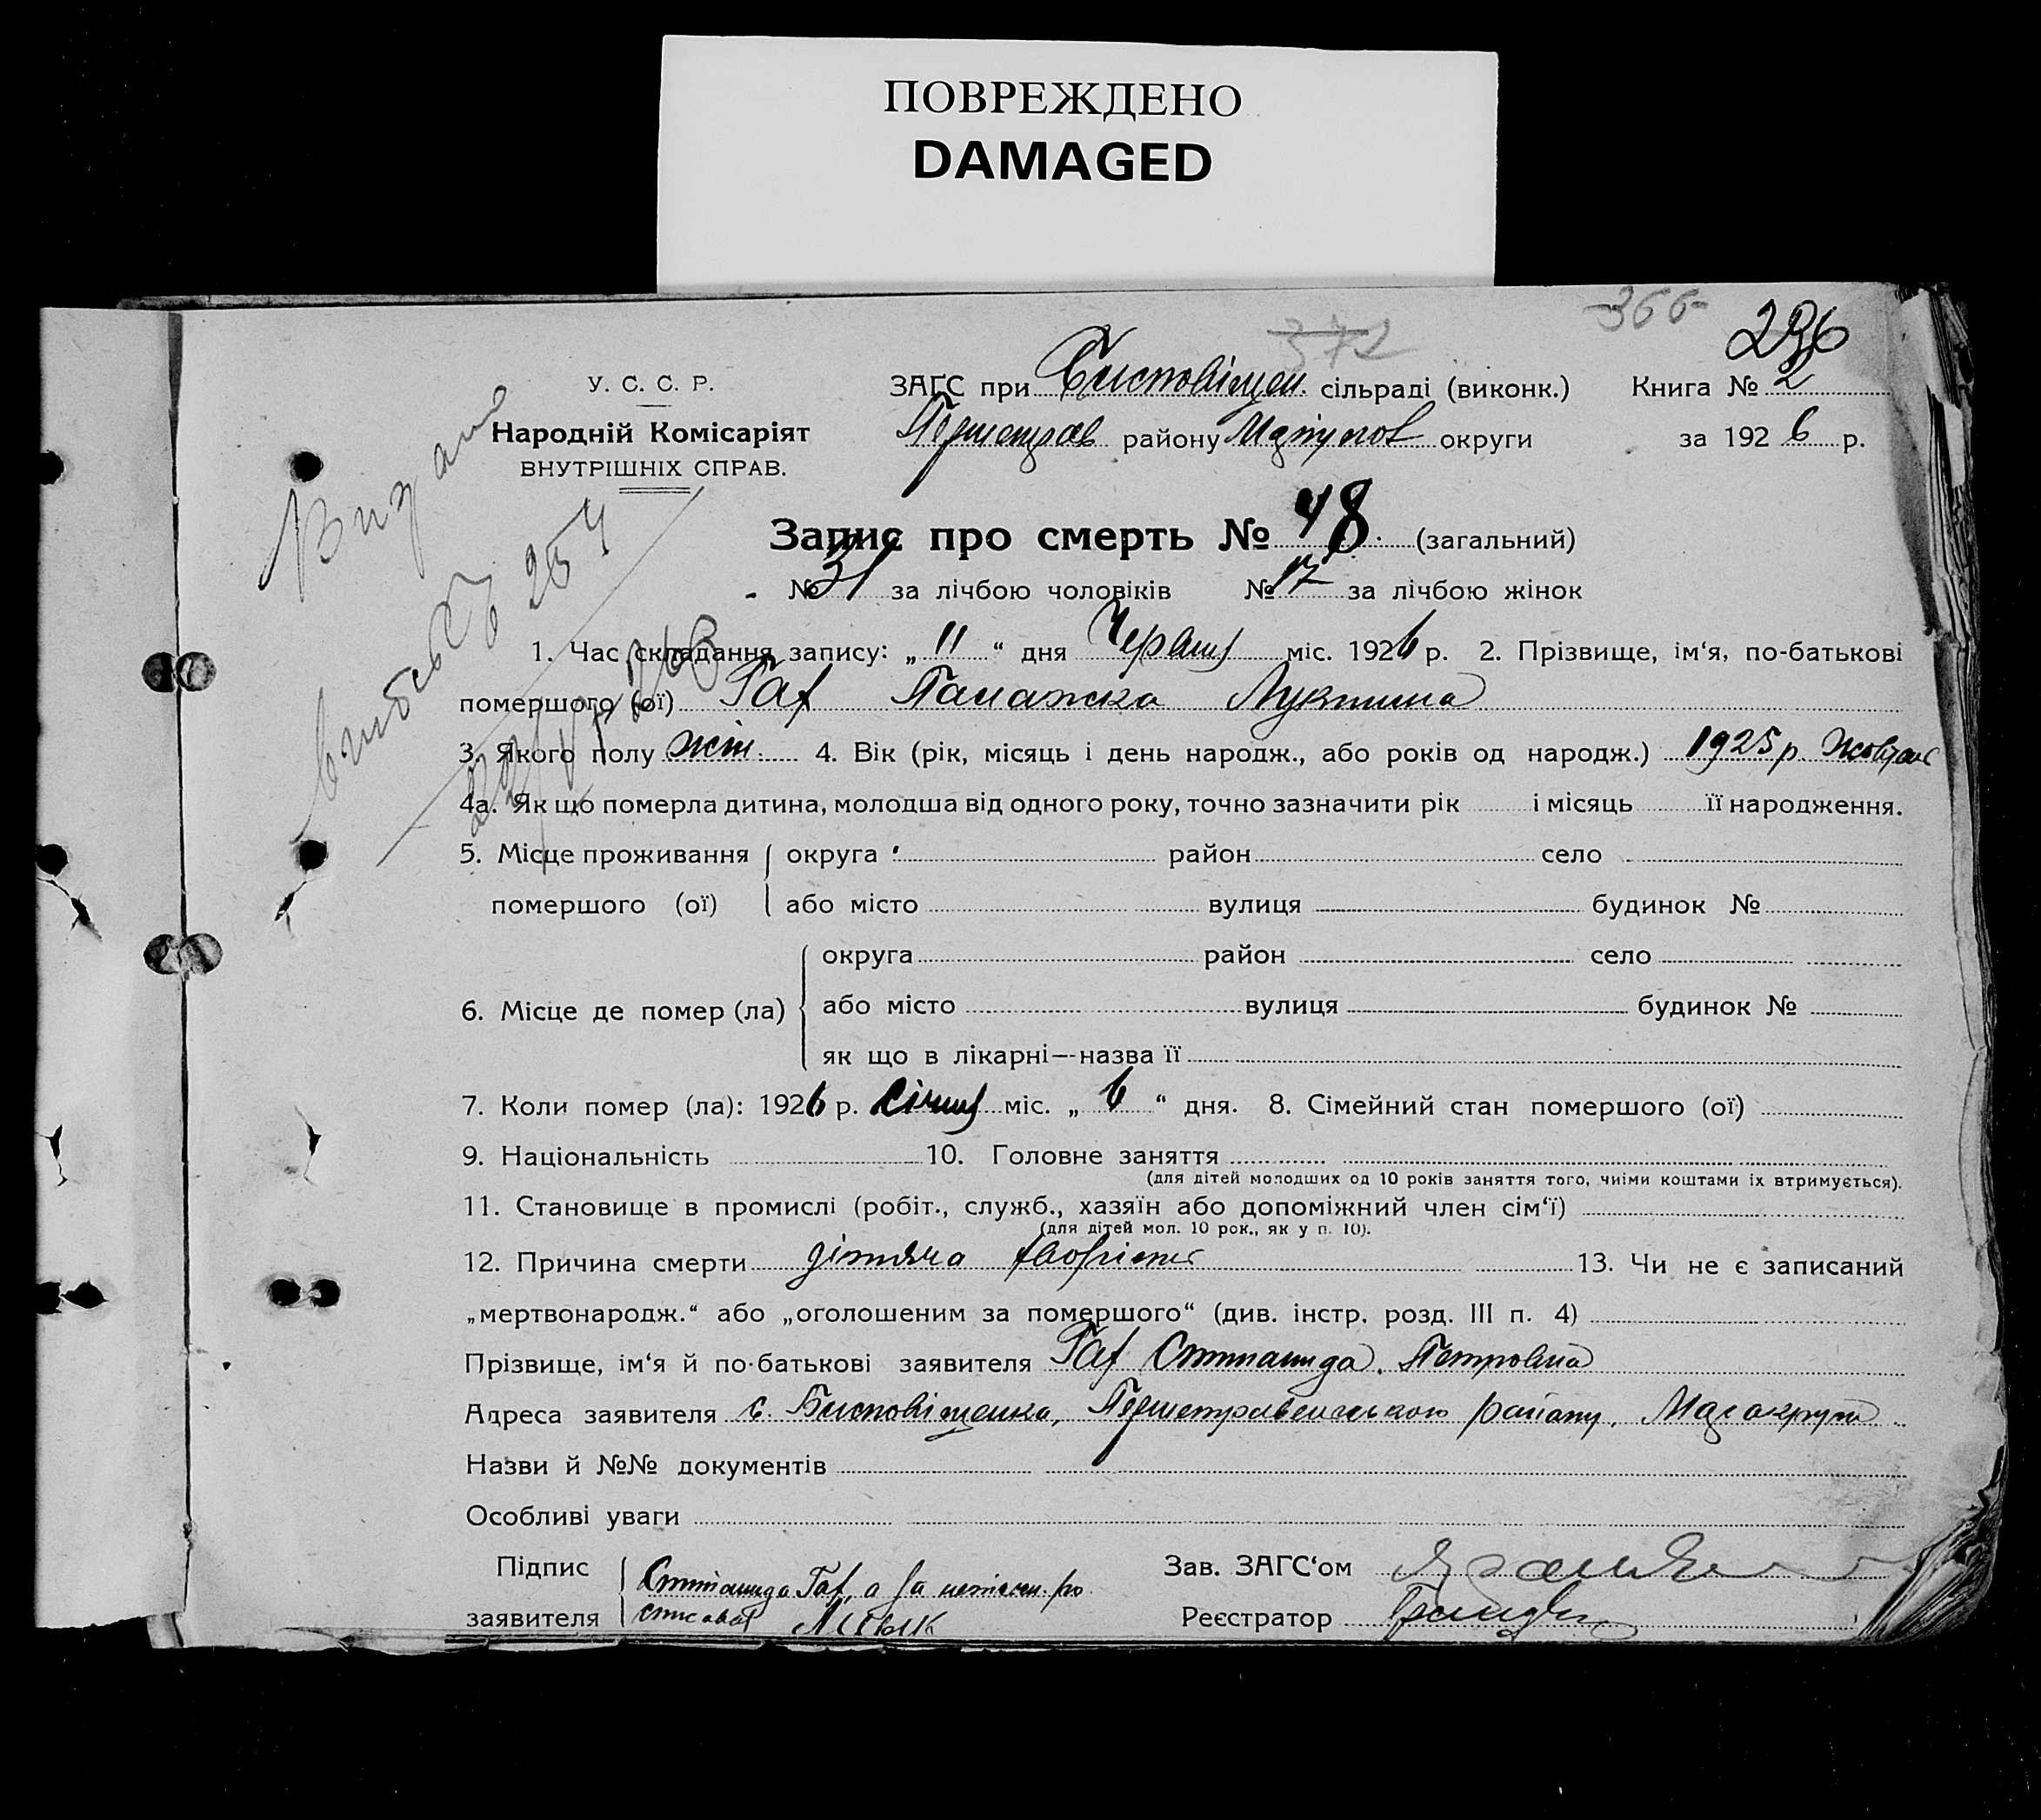 ПОВРЕЖДЕНО
DAMAGED
366
296
372
У. С. С. Р.
ЗАГС при сільраді (виконк.) Книга № 2
Народній Комісаріят
району округи за 1926 р.
ВНУТРІШНІХ СПРАВ.
Запис про смерть № 48. (загальний)
№ 31 за лічбою чоловіків № 17 за лічбою жінок
1. Час складання запису: „ 11 “ дня Червня міс. 1926 р. 2. Прізвище, ім‘я, по-батькові
помершого (ої) Гаf
3. Якого полу жін. 4. Вік (рік, місяць і день народж., або років од народж.) 1925 р. Жовтня
4а. Як що померла дитина, молодша від одного року, точно зазначити рік і місяць її народження.
5. Місце проживання округа район село
помершого (ої) або місто вулиця будинок №
округа район село
6. Місце де помер (ла) або місто вулиця будинок №
як що в лікарні—назва її
7. Коли помер (ла): 1926 р. Січня міс. „ 6 “ дня. 8. Сімейний стан помершого (ої)
9. Національність 10. Головне заняття
(для дітей молодших од 10 років заняття того, чиїми коштами їх втримується).
11. Становище в промислі (робіт., служб., хазяїн або допоміжний член сім‘ї)
(для дітей мол. 10 рок., як у п. 10).
12. Причина смерти дітяча 13. Чи не є записаний
„мертвонародж.“ або „оголошеним за помершого“ (див. інстр. розд. III п. 4)
Прізвище, ім‘я й по-батькові заявителя Петровна
Адреса заявителя с. району,
Назви й №№ документів
Особливі уваги
Підпис Зав. ЗАГС‘ом
заявителя Реєстратор